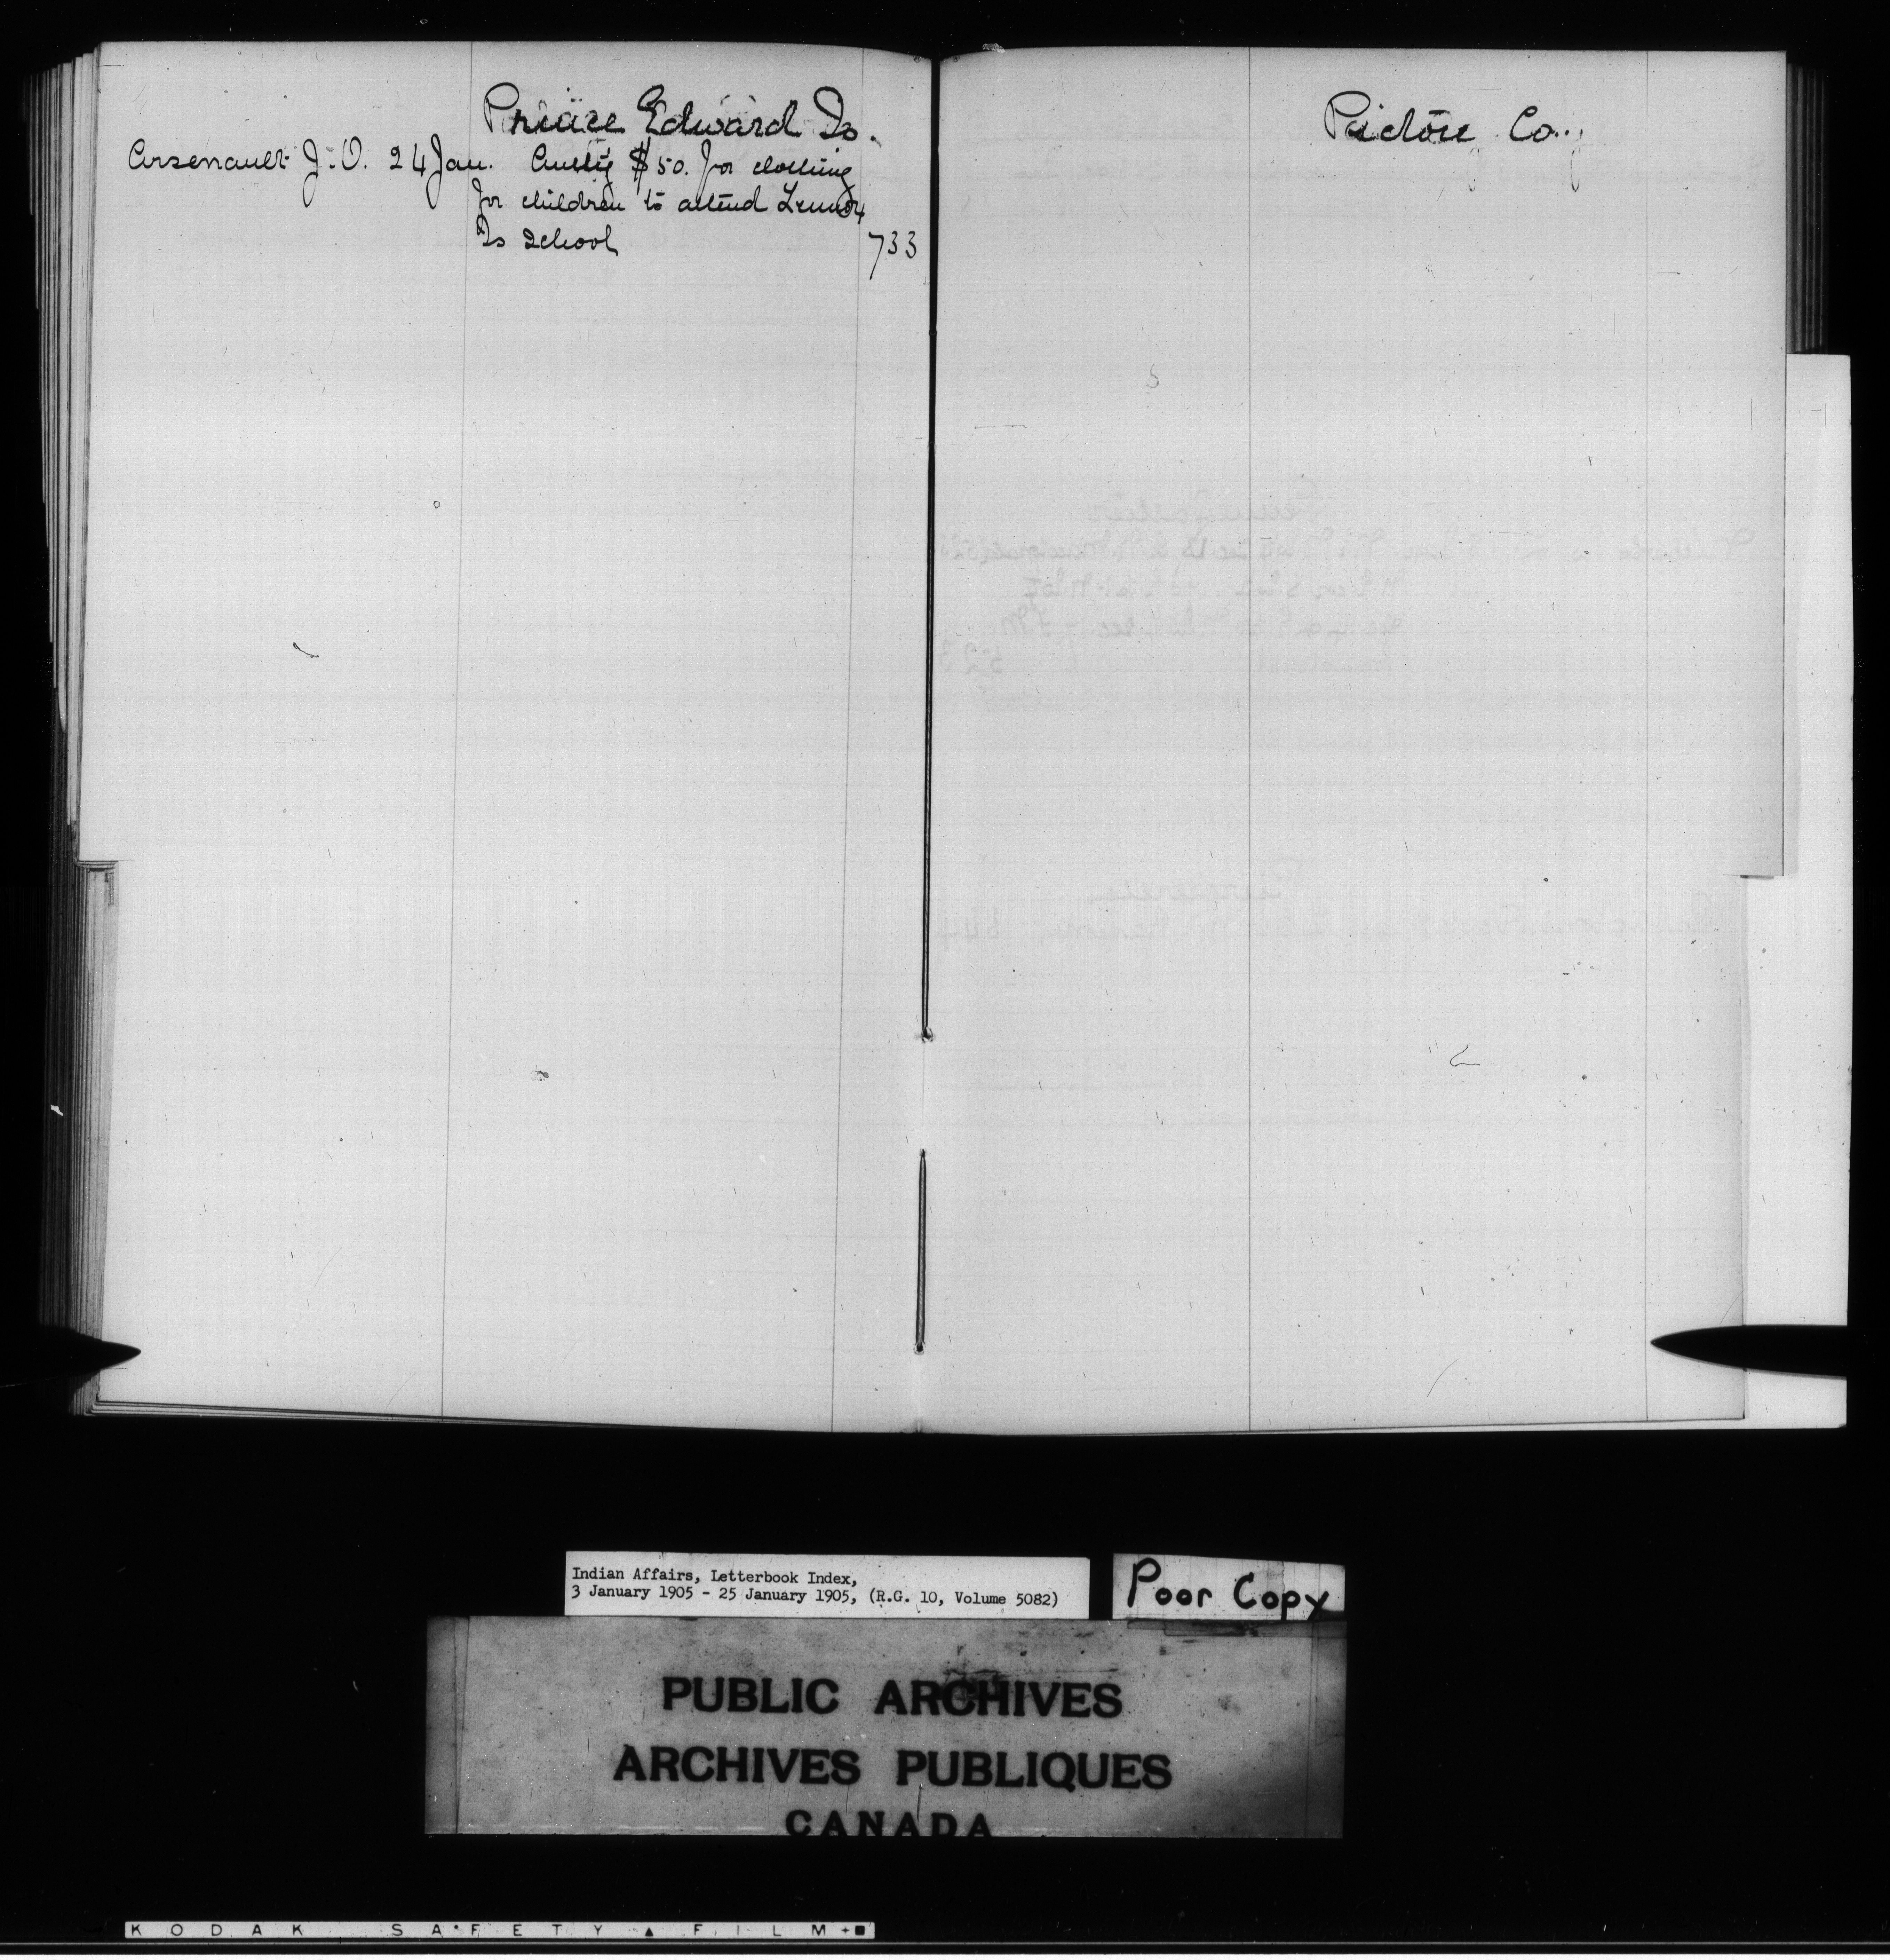 Prince Edward Is.
Arsenault J. O. 24 Jan. Authy $50. for clothing
for children to attend Lennox
Is School 733
Pictou Co.
Indian Affairs, Letterbook Index,
3 January 1905 - 25 January 1905, (R.G. 10, Volume 5082)
Poor Copy
PUBLIC ARCHIVES
ARCHIVES PUBLIQUES
CANADA
KODAK SAFETY FILM